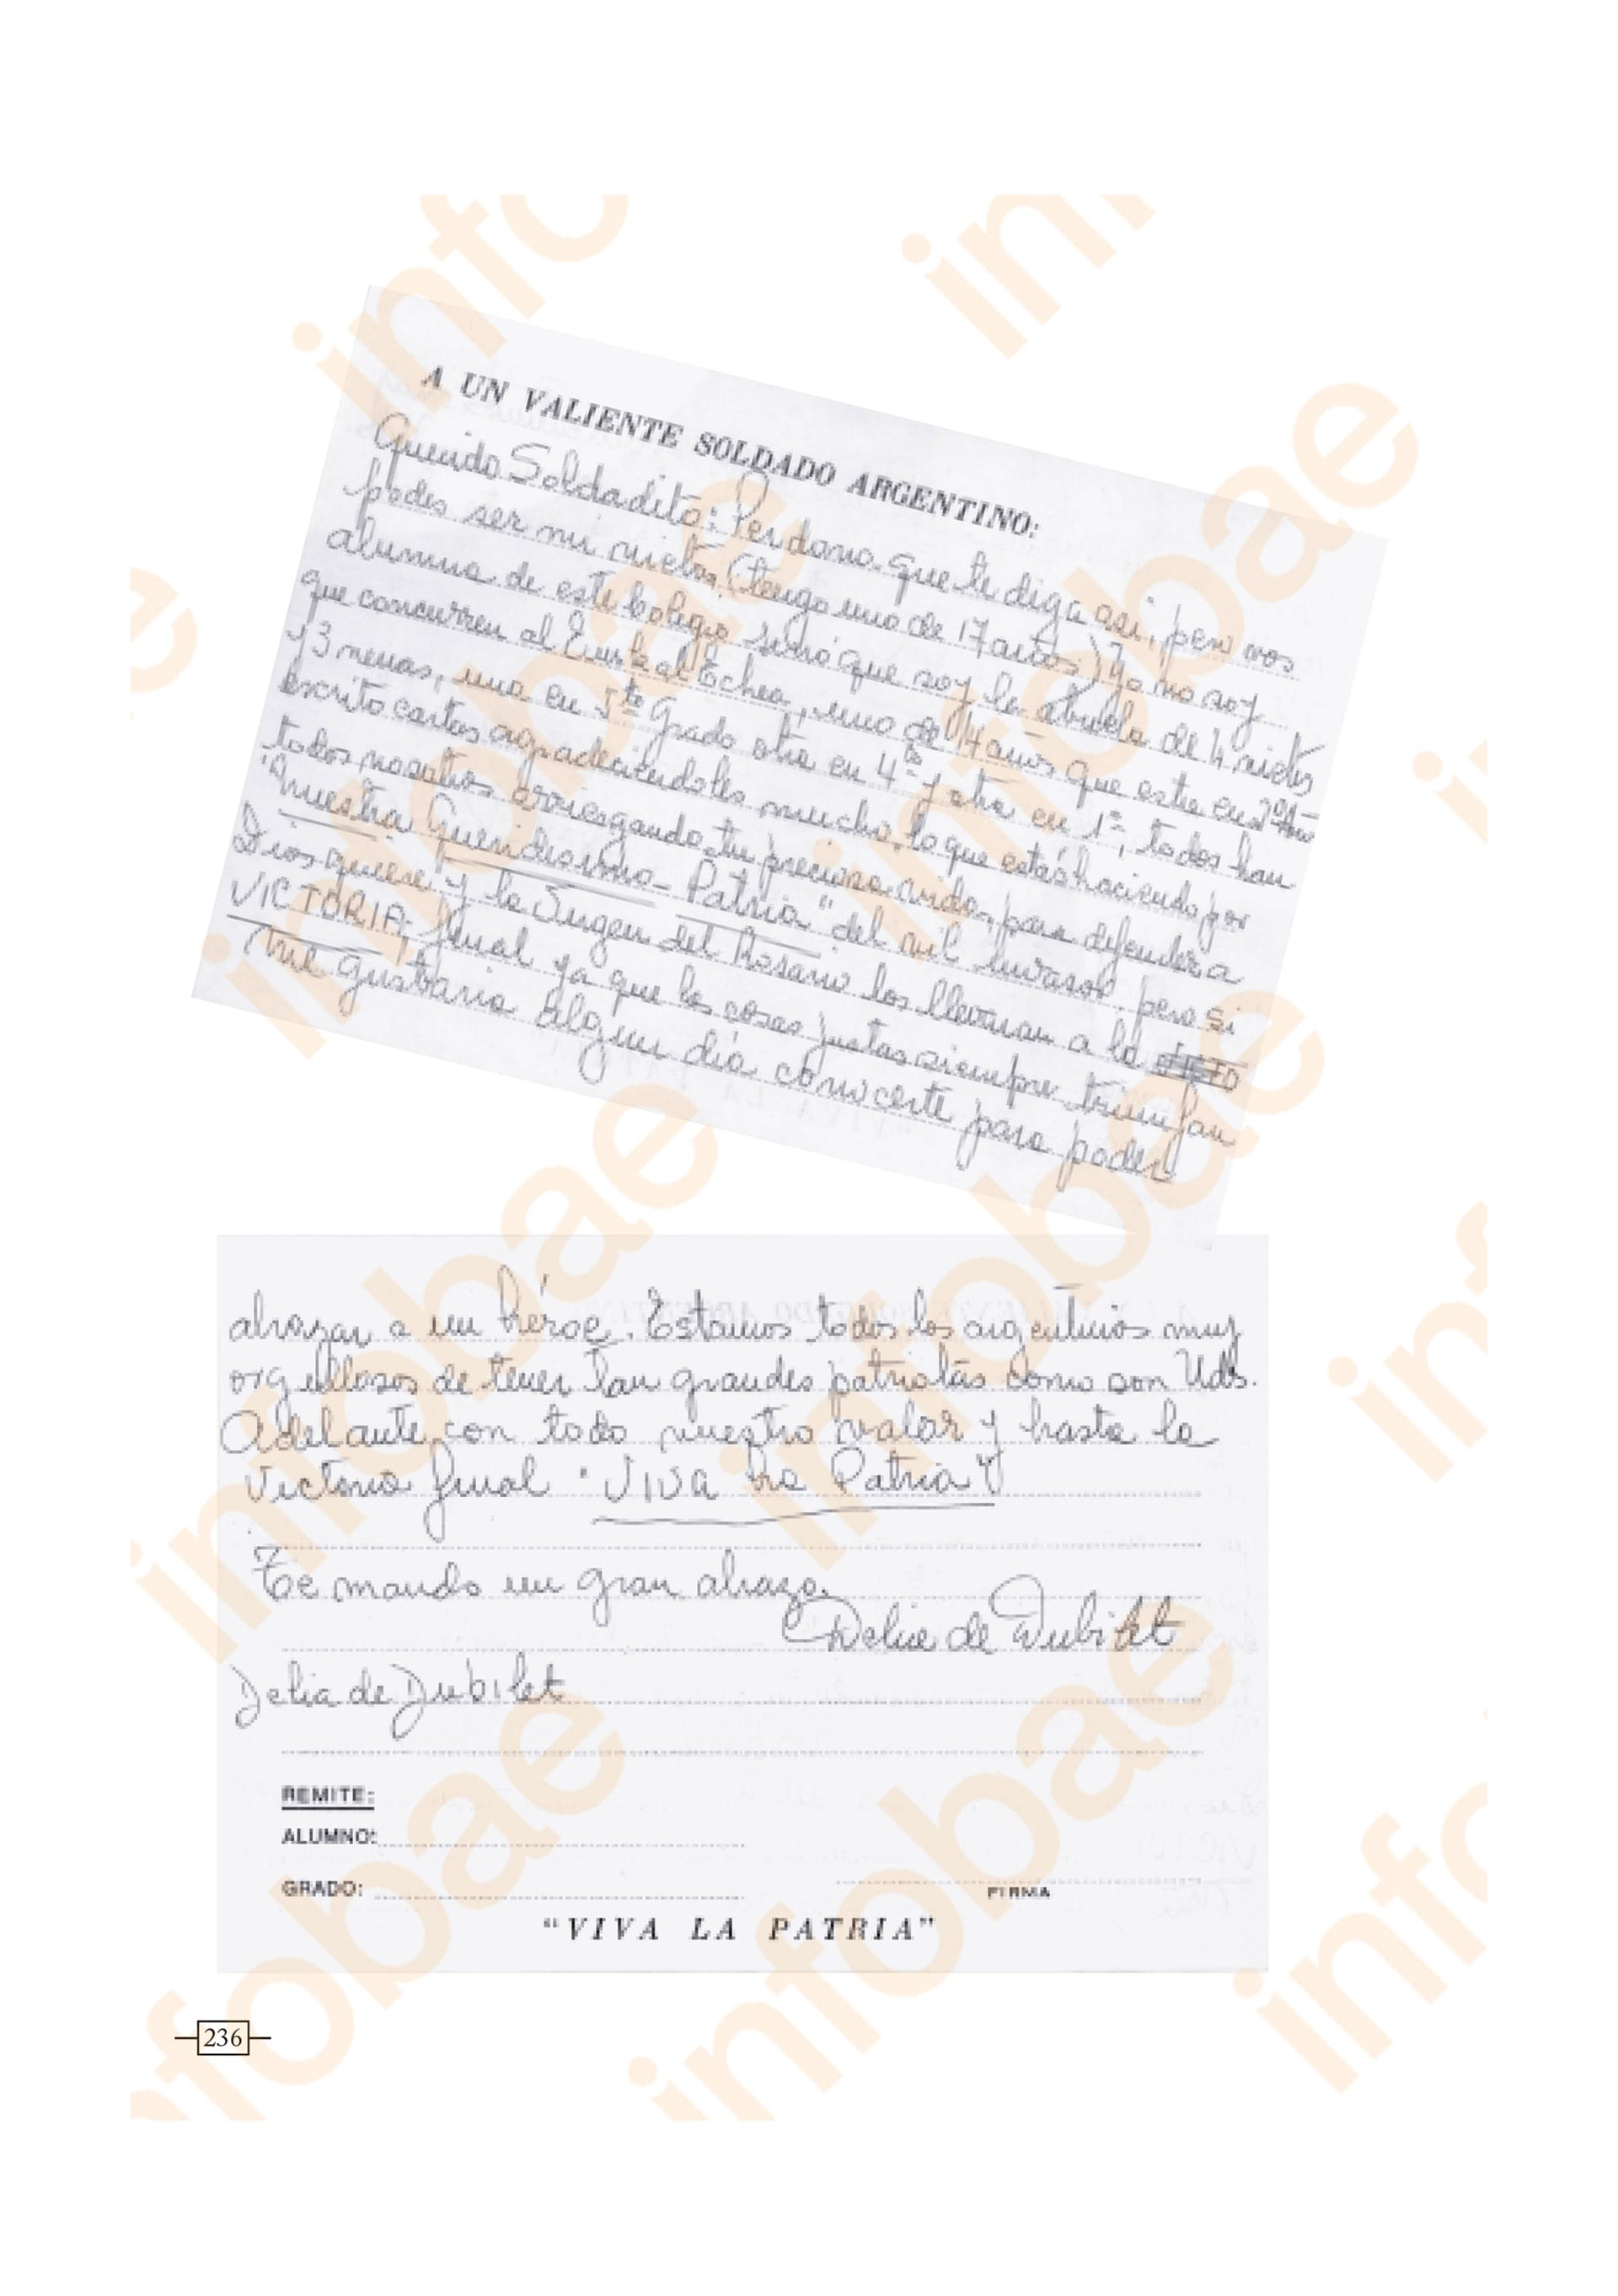 A UN VALIENTE SOLDADO ARGENTINO:
Querido Soldadito: Perdona que te diga asi, pero vos
podes ser mi nieto, (tengo uno de 17 años) Yo no soy
alumna de este Colegio sinó que soy la abuela de 4 nietos
que concurren al Euskal Echea, uno de 14 años que esta en 2º Año
y 3 nenas, una en 5to Grado otra en 4to y otra en 1º, todos han
escrito cartas agradeciendoles mucho, lo que estás haciendo por
todos nosotros arriesgando tu preciosa vida, para defender a
"Nuestra Queridisima Patria" del vil invasor, pero si
Dios quiere y la Virgen del Rosario los llevaran a la
VICTORIA final ya que las cosas justas siempre triunfan
Me gustaria algun dia conocerte para poder
abrazar a un héroe. Estamos todos los argentinos muy
orgullosos de tener tan grandes patriotas como son Uds.
Adelante con todo nuestro valor y hasta la
victoria final "VIVA la Patria"
Te mando un gran abrazo.
Delia de Dubilet
Delia de Dubilet
REMITE:
ALUMNO:
GRADO:
FIRMA
"VIVA LA PATRIA"
236
infobae